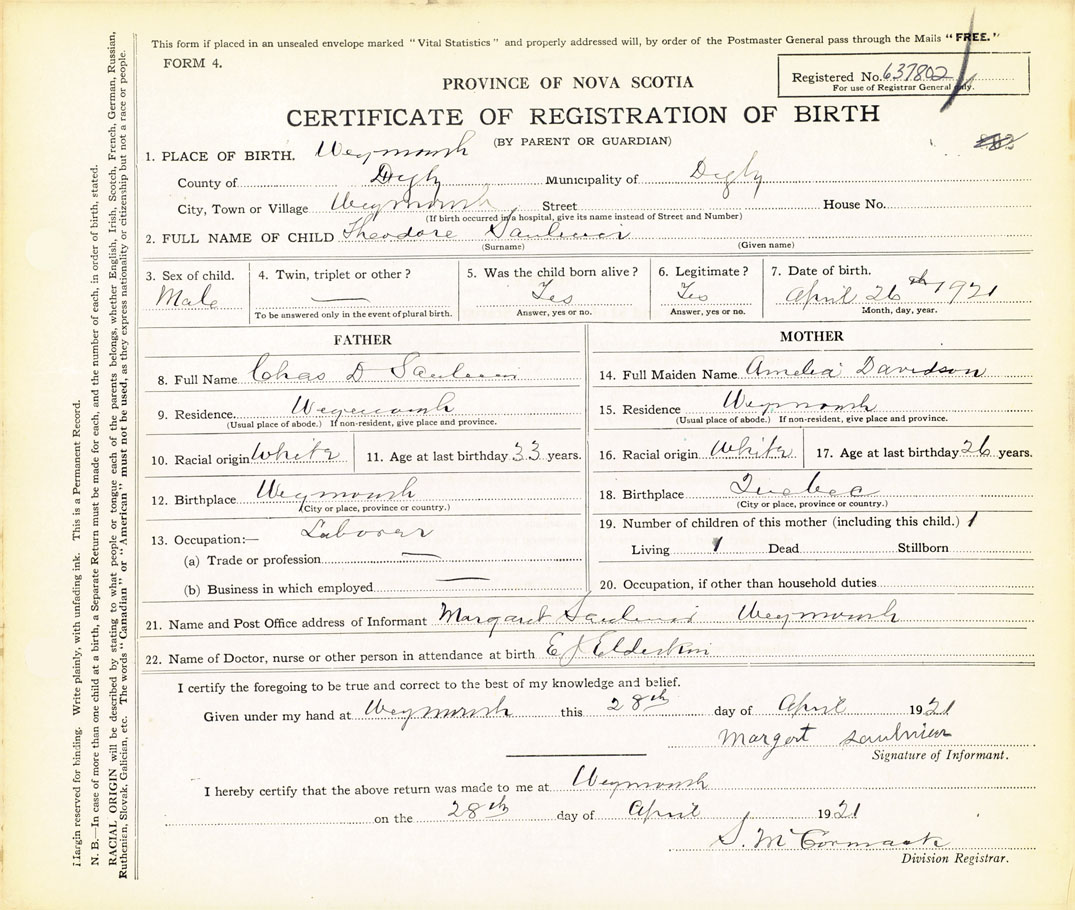 This form if placed in an unsealed envelope marked "Vital Statistics" and properly addressed will, by order of the Postmaster General pass through the Mails "FREE."
FORM 4.
Registered No. 637802
For use of Registrar General only.
PROVINCE OF NOVA SCOTIA
CERTIFICATE OF REGISTRATION OF BIRTH
(BY PARENT OR GUARDIAN)
1. PLACE OF BIRTH. Weymouth
County of Digby Municipality of Digby
City, Town or Village Weymouth Street House No.
(If birth occurred in a hospital, give its name instead of Street and Number)
2. FULL NAME OF CHILD Theodore Saulnier
(Surname) (Given name)
3. Sex of child. 4. Twin, triplet or other? 5. Was the child born alive? 6. Legitimate? 7. Date of birth.
Male — Yes Yes April 26th 1921
To be answered only in the event of plural birth. Answer, yes or no. Answer, yes or no. Month, day, year.
FATHER
8. Full Name Chas D Saulnier
9. Residence. Weymouth
(Usual place of abode.) If non-resident, give place and province.
10. Racial origin White 11. Age at last birthday 33 years.
12. Birthplace Weymouth
(City or place, province or country.)
13. Occupation:— Laborer
(a) Trade or profession —
(b) Business in which employed —
MOTHER
14. Full Maiden Name Amelia Davidson
15. Residence Weymouth
(Usual place of abode.) If non-resident, give place and province.
16. Racial origin White 17. Age at last birthday 26 years.
18. Birthplace Quebec
(City or place, province or country.)
19. Number of children of this mother (including this child.) 1
Living 1 Dead Stillborn
20. Occupation, if other than household duties
21. Name and Post Office address of Informant Margaret Saulnier Weymouth
22. Name of Doctor, nurse or other person in attendance at birth E J Elderkin
I certify the foregoing to be true and correct to the best of my knowledge and belief.
Given under my hand at Weymouth this 28th day of April 1921
Margert Saulnier
Signature of Informant.
I hereby certify that the above return was made to me at Weymouth
on the 28th day of April 1921
S. McCormack
Division Registrar.
Margin reserved for binding. Write plainly, with unfading ink. This is a Permanent Record.
N. B.—In case of more than one child at a birth, a Separate Return must be made for each, and the number of each, in order of birth, stated.
RACIAL ORIGIN will be described by stating to what people or tongue each of the parents belongs, whether English, Irish, Scotch, French, German, Russian,
Ruthenian, Slovak, Galician, etc. The words "Canadian" or "American" must not be used, as they express nationality or citizenship but not a race or people.